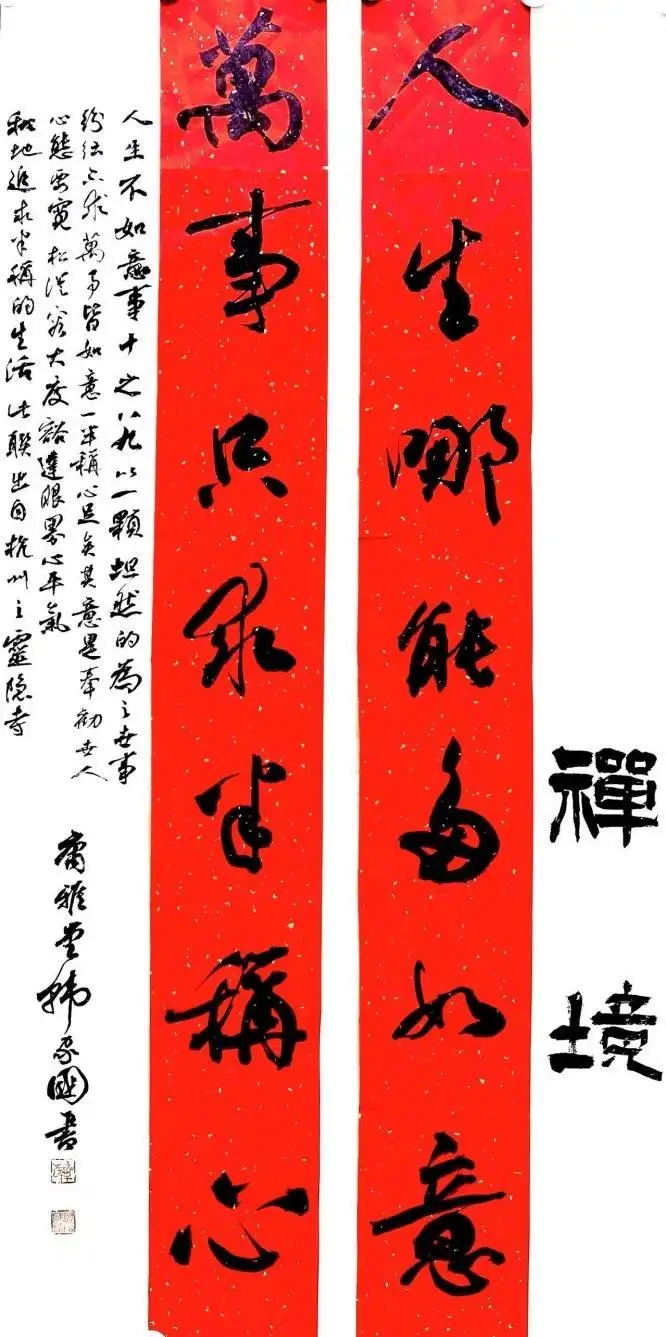 禪境
人生哪能多如意
萬事只求半稱心
人生不如意事十之八九以一顆坦然的為之世事
紛紜只求萬事皆如意一半稱心足矣其意是奉勸世人
心態要寬松從容大度豁達眼界心平氣
和地追求半稱的生活此聯出自杭州之靈隐寺
雅堂韩家國書